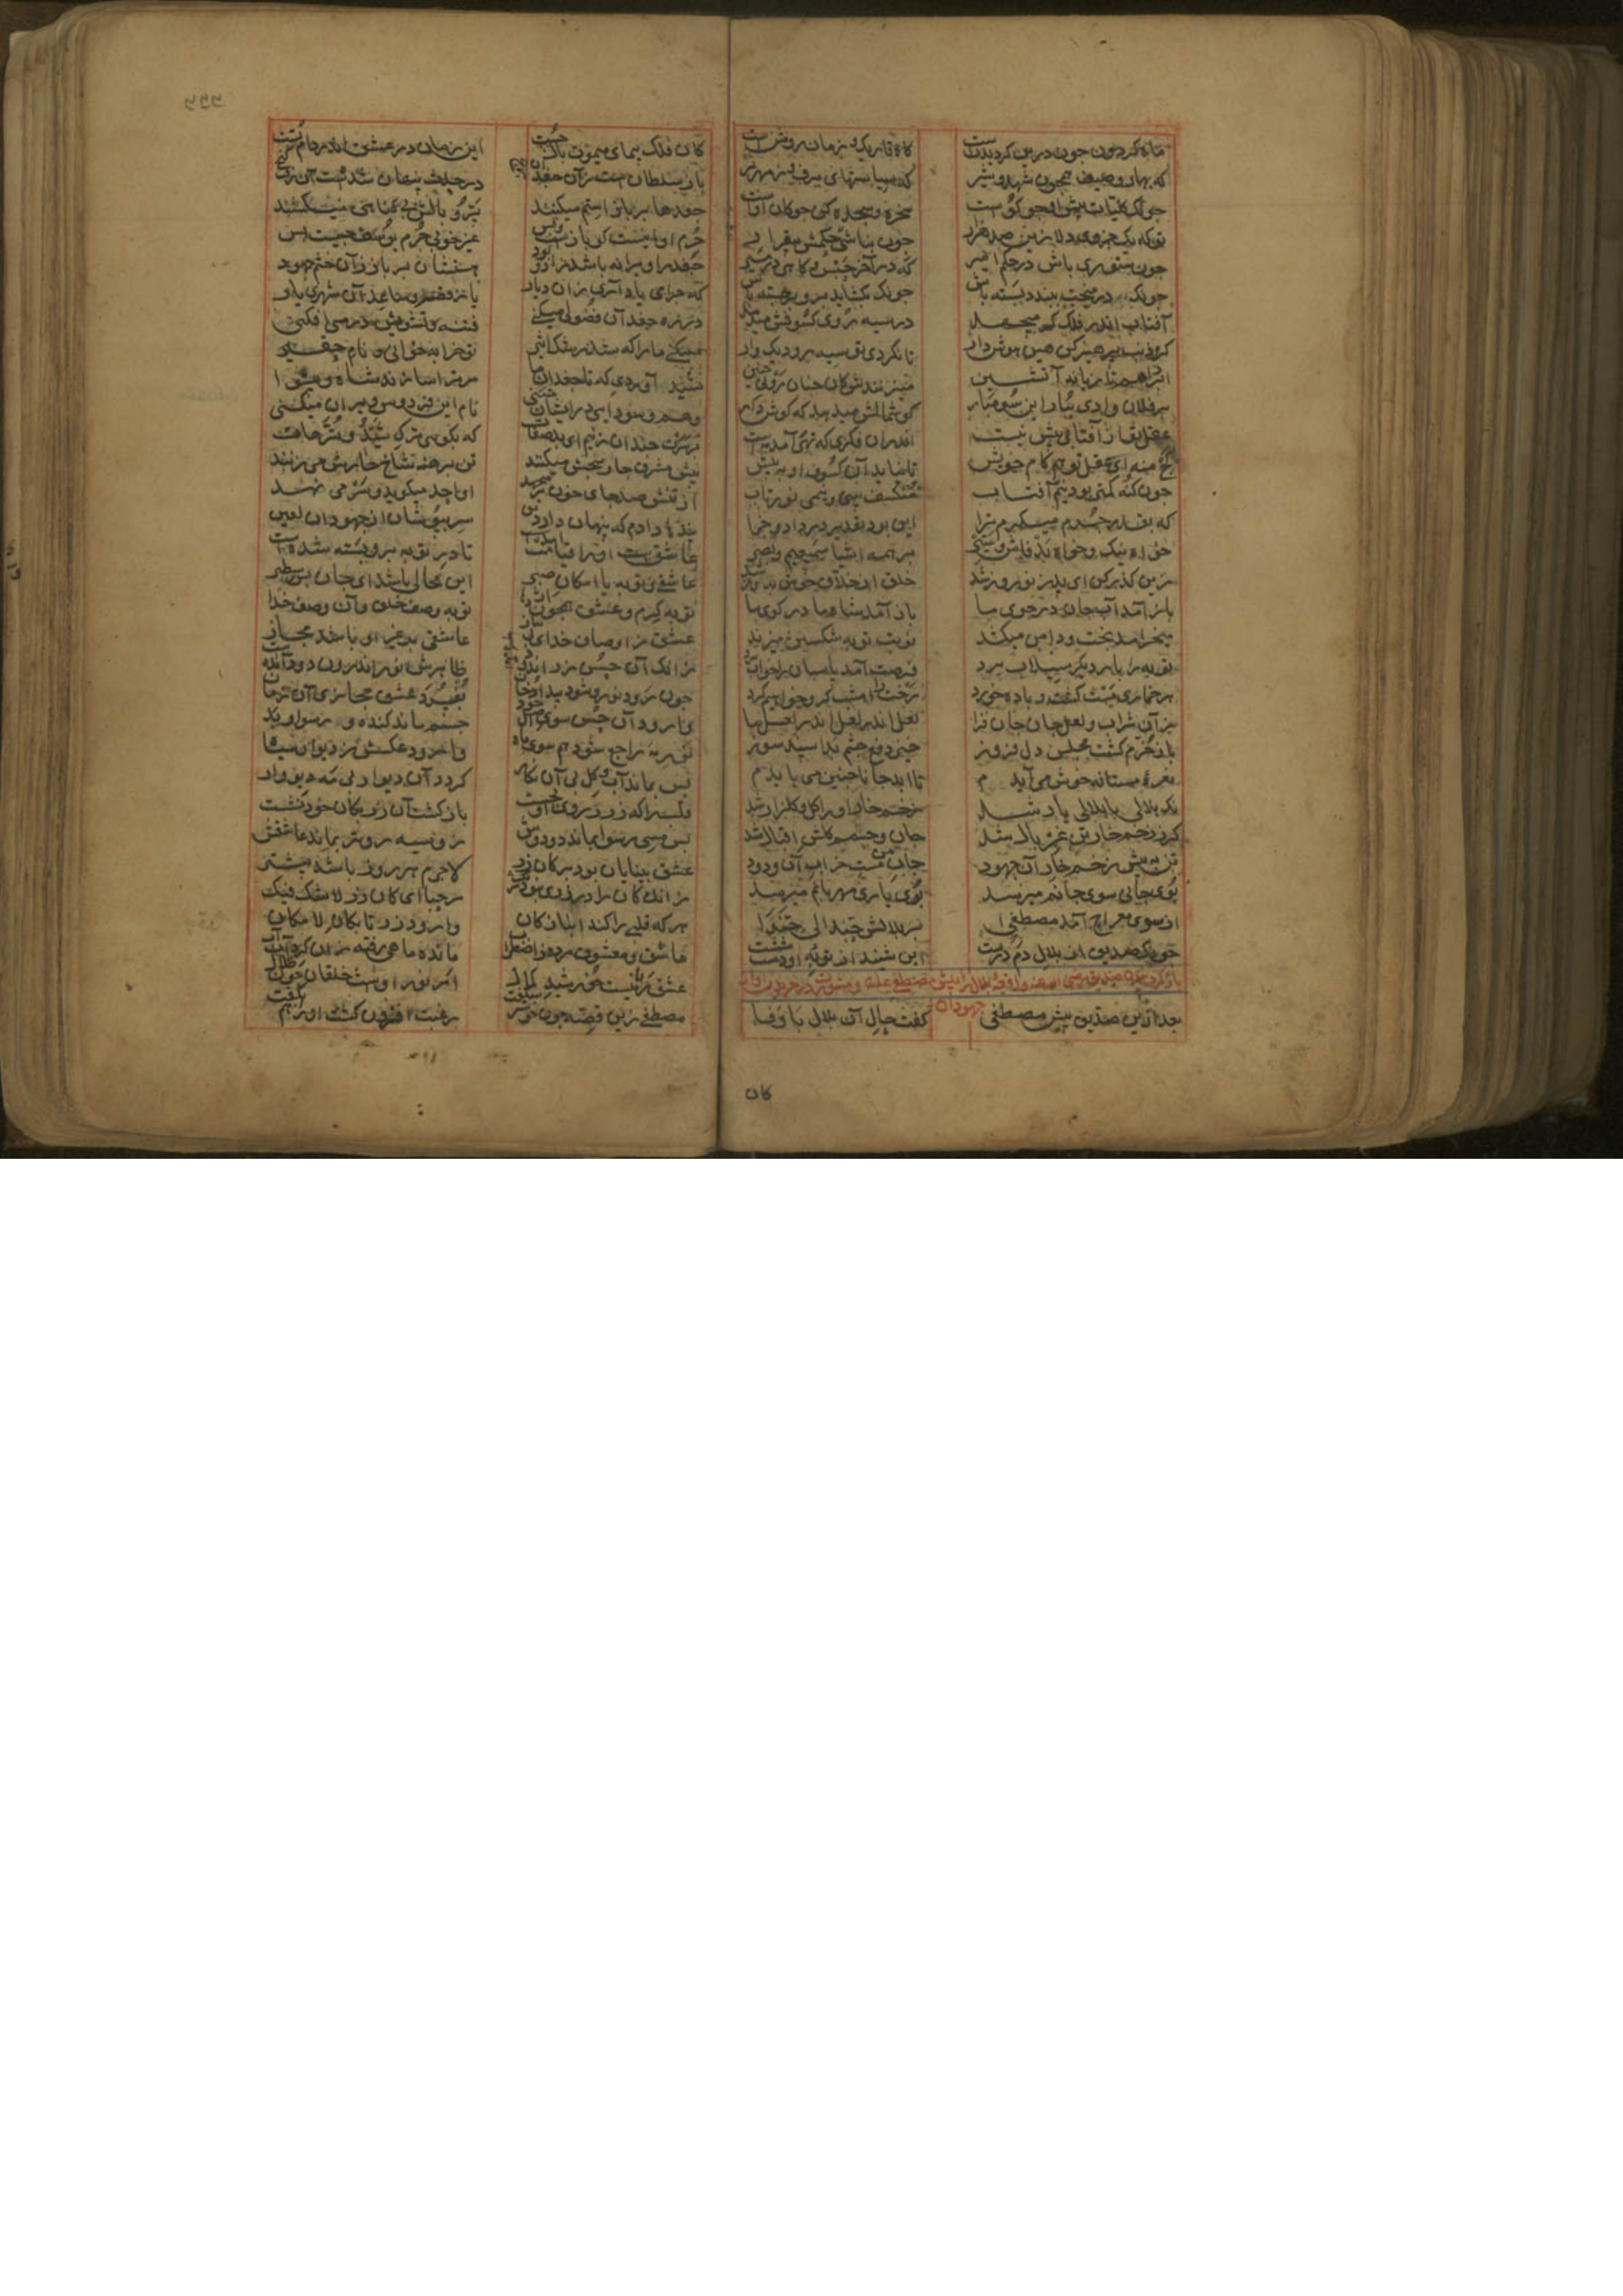 ماه کردون جون درین کردیدنست کاه تاریک و زمانی روشنست
که بهار و صیف همجون شهد و شیر که سیاستهای برف و زمهریر
جونک کلیات پیش او جو کوست سخره و سجده کن جوکان اوست
تو که یک جزوی دلا زین صد هزار جون نباشی حکمش بیقرار
جون ستوری باش در حکم امیر که در آخر حبس و کاهی در مسیر
جونک بر میخت ببندد بسته باش جونک بکشاید برو برجسته باش
آفتاب اندر فلک کژ میجهد در سیه روی کسوفش میدهد
کز ذنب پرهیز کن هین هوش دار تا نکردی تو سیه رو دیک وار
ابر را هم تازیانه آتشین میزنندش کان جنان رو نی جنین
بر فلان وادی ببار این سو مبار کوشمالش میدهد که کوش دار
عقل تو از آفتابی بیش نیست اندر آن فکری که نهی آمد مایست
کژ منه ای عقل تو هم کام خویش تا نیاید آن کسوف او به پیش
جون کنه کمتر بود نیم آفتاب منکسف بینی و نیمی نورتاب
که بقدر جرم میکیرم ترا این بود تقدیر در داد و جزا
خواه نیک و خواه بد فاش و ستیر بر همه اشیا سمیعیم و بصیر
زین کذر کن ای پدر نوروز شد خلق از خلاق خوش پدفوز شد
باز آمد آب جان در جوی ما باز آمد شاه ما در کوی ما
میخرامد بخت و دامن میکشد نوبت توبه شکستن میزند
توبه را بار دیکر سیلاب برد فرصت آمد پاسبان را خواب برد
هر خماری مست کشت و باده خورد رخت را امشب کرو خواهیم کرد
زان شراب و لعل جان جان فزا لعل اندر لعل اندر لعل ما
باز خرم کشت مجلس دل فروز خیز دفع چشم بد اسپند سوز
نعرهٔ مستانه خوش می آیدم تا ابد جانا جنین می بایدم
نک هلالی با بلالی یار شد زخم خار او را کل و کلزار شد
کر ز زخم خار تن غربال شد جان و جسمم کلشن اقبال شد
تن به پیش زخم خار آن جهود جان من مست خراب آن ودود
بوی جانی سوی جانم میرسد بوی یاری مهربانم میرسد
از سوی معراج آمد مصطفی بر بلالش حبذا لی حبذا
جونک صدیق از بلال دم درست این شنید از توبهٔ او دست شست
صدیق رضی الله عنه واقعهٔ بلال را پیش مصطفی علیه
جهودان
بعد ازین صدیق پیش مصطفی کفت حال آن بلال با وفا
کان
کان فلک پیمای میمون بال جست این زمان در عشق اندر دام تست
باز سلطانست زان جغدان برنج در حدث پنهان شدست آن زفت کنج
جغدها بر باز استم میکنند پر و بالش بی کناهی میکنند
جرم او اینست کو بازست و بس غیر خوبی جرم یوسف جیست پس
جغد را ویرانه باشد زاد و بود هستشان بر باز زان خشم جهود
که جرا می یاد آری زان دیار یا ز قصر و ساعد آن شهریار
در ده جغدان فضولی میکنی فتنه و تشویش در می افکنی
مسکن ما را که شد رشک اثیر تو خرابه خوانی و نام حقیر
شید آوردی که تا جغدان ما مر ترا سازند شاه و پیشوا
وهم و سودایی در ایشان میتنی نام این فردوس ویران میکنی
بر سرت جندان زنیم ای بدصفات که بکویی ترک شید و ترهات
پیش مشرق جار میخش میکنند تن برهنه شاخ خارش می زنند
از تنش صد جای خون بر میجهد او احد میکوید و سر می نهد
پندها دادم که پنهان دار دین سر بپوشان از جهودان لعین
عاشق است او را قیامت آمدست تا در توبه برو بسته شدست
عاشقی و توبه یا امکان صبر این محالی باشد ای جان بس سطبر
توبه کرم و عشق همجون اژدها توبه وصف خلق و آن وصف خدا
عشق ز اوصاف خدای بی نیاز عاشقی بر غیر او باشد مجاز
زانک آن حسن زراندود آمدست ظاهرش نور اندرون دود آمدست
جون رود نور و شود پیدا دخان بفسرد عشق مجازی آن زمان
وا رود آن حسن سوی اصل خود جسم ماند کنده و رسوا و بد
نور مه راجع شود هم سوی ماه وا رود عکسش ز دیوار سیاه
پس بماند آب و کل بی آن نکار کردد آن دیوار بی مه دیو وار
قلب را که زر ز روی او بجست باز کشت آن زر بکان خود نشست
پس مس رسوا بماند دود وش زو سیه رو تر بماند عاشقش
عشق بینایان بود بر کان زر لاجرم هر روز باشد بیشتر
زانک کان را در زری نبود شریک مرحبا ای کان زر لا شک فیک
هر که قلبی را کند انباز کان وا رود زر تا بکان لا مکان
عاشق و معشوق مرده ز اضطراب مانده ماهی رفته زان کرداب آب
عشق ربانیست خورشید کمال امر نور اوست خلقان جون ظلال
مصطفی زین قصه جون خوش شکفت رغبت افزون کشت او را هم بکفت